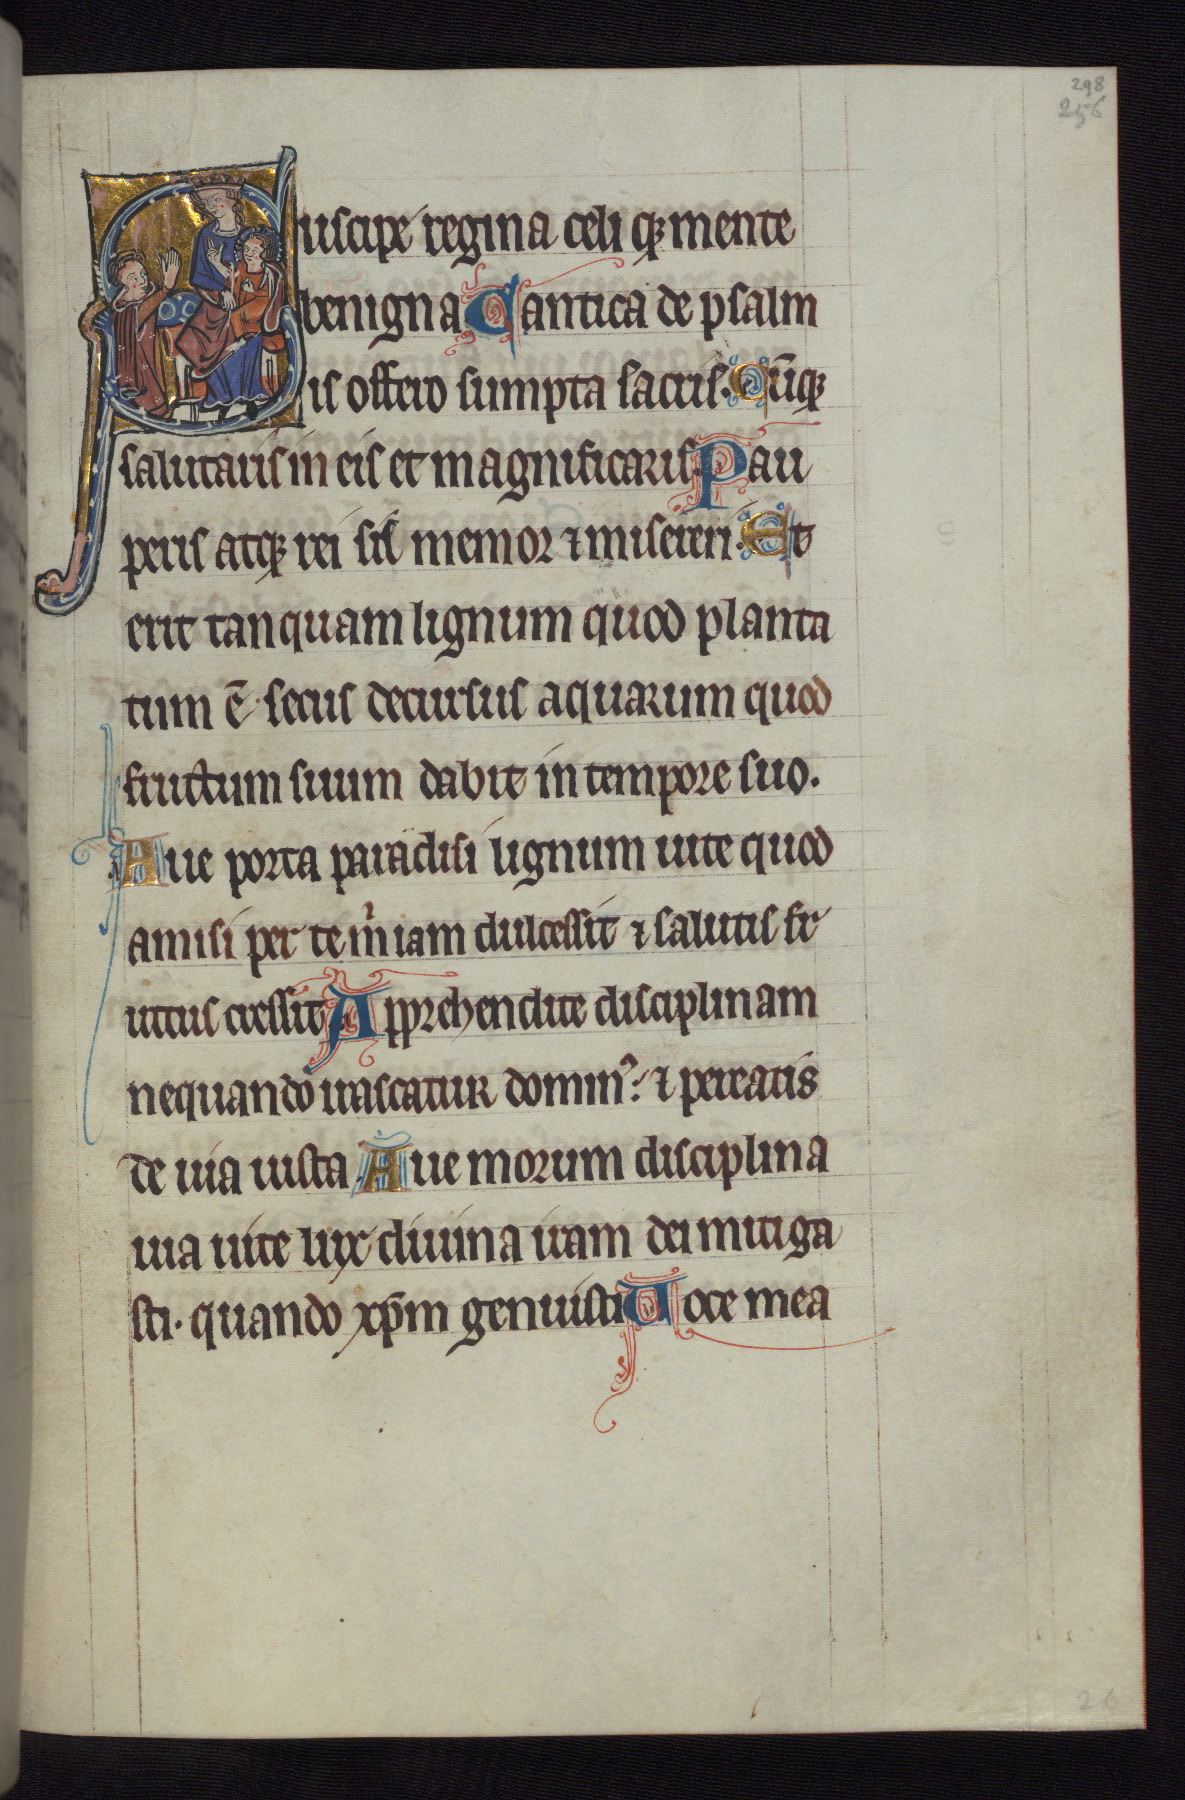 298
256
Suscipe regina celi qꝫ mente
benigna Cantica de psalm
is offero sumpta sacris. Cūqꝫ
salutaris in eis et magnificaris Pau
peris atqꝫ rei sis memor ⁊ misereri. Et
erit tanquam lignum quod planta
tum ē secus decursus aquarum quod
fructum suum dabit in tempore suo.
Aue porta paradisi lignum uite quod
amisi per te m̄ iam dulcessit ⁊ salutis fr
uctus cressit Apprehendite disciplinam
nequando irascatur domin᷒. ⁊ pereatis
de uia iusta. Aue morum disciplina
uia uite lux diuina iram dei mitiga
sti. quando xp̄m genuisti Uoce mea
26